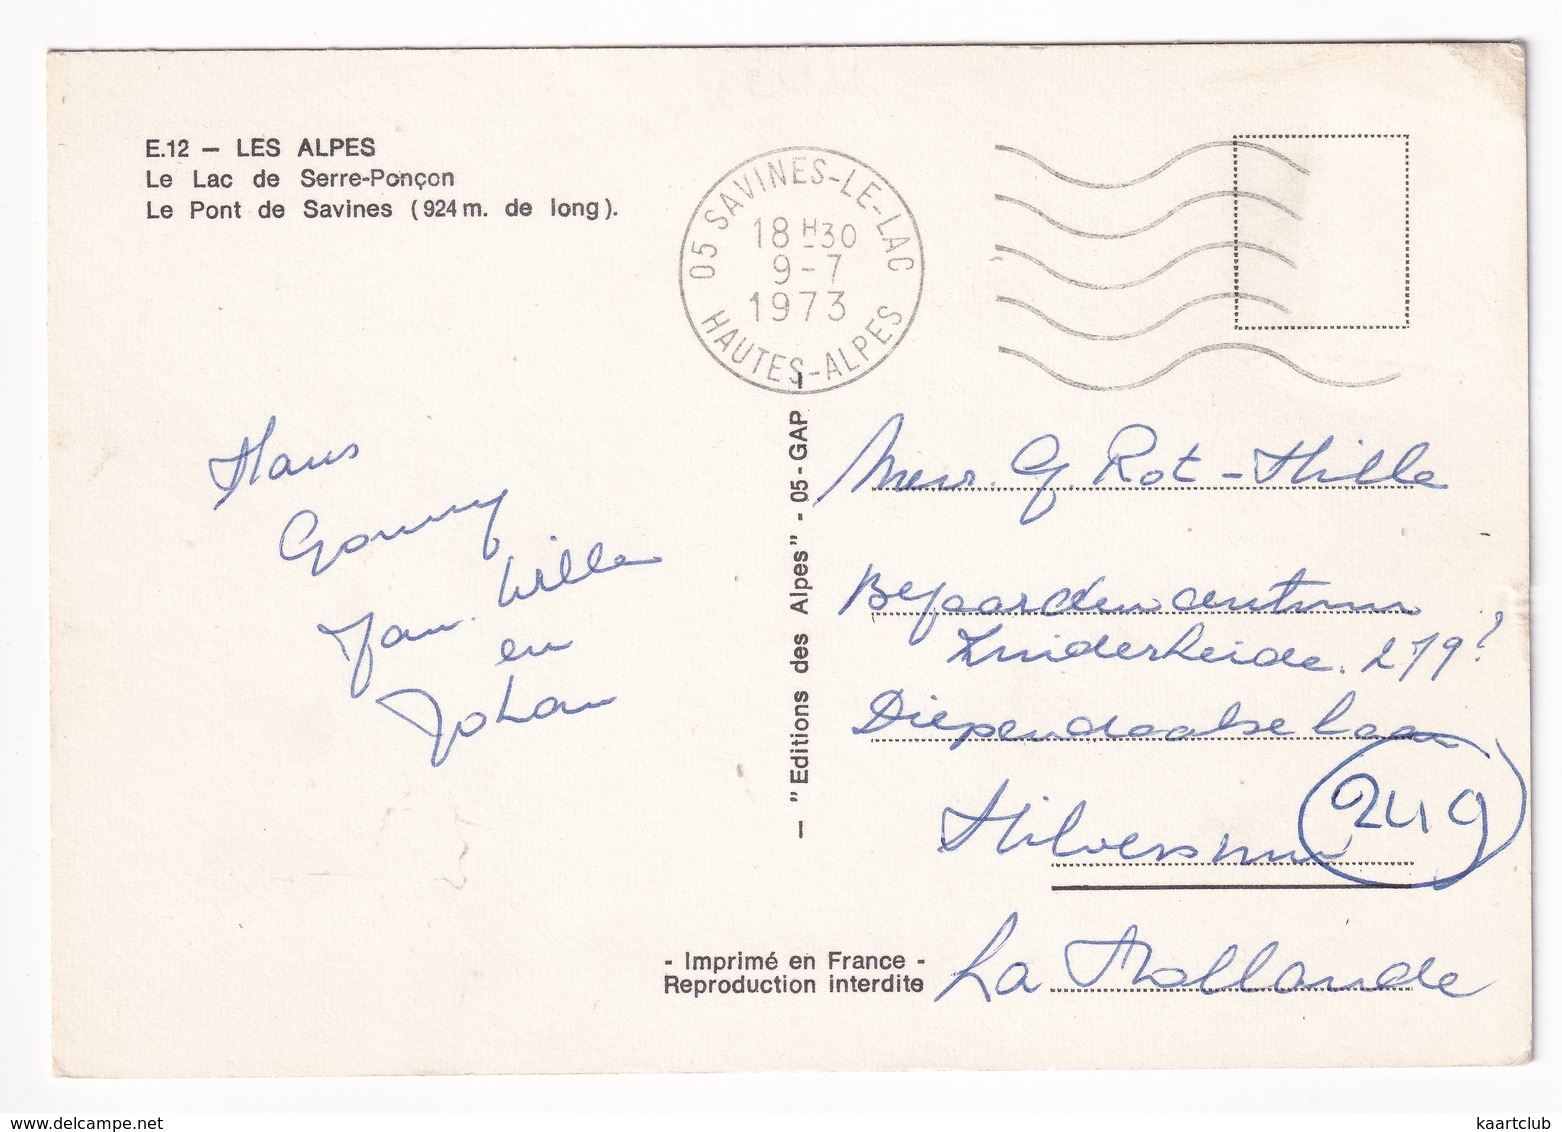 E.12 — LES ALPES
Le Lac de Serre-Ponçon
Le Pont de Savines (924 m. de long).
05 SAVINES-LE-LAC
18 H 30
9-7
1973
HAUTES-ALPES
Hans
Gonny
Jan. Wille
en
Johan
— "Editions des Alpes" - 05 - GAP —
Mevr. G. Rot-Hille
Bejaardencentrum
Zuiderheide. 279?
Diependaalselaan
249
Hilversum
La Hollande
- Imprimé en France -
Reproduction interdite
kaartclub